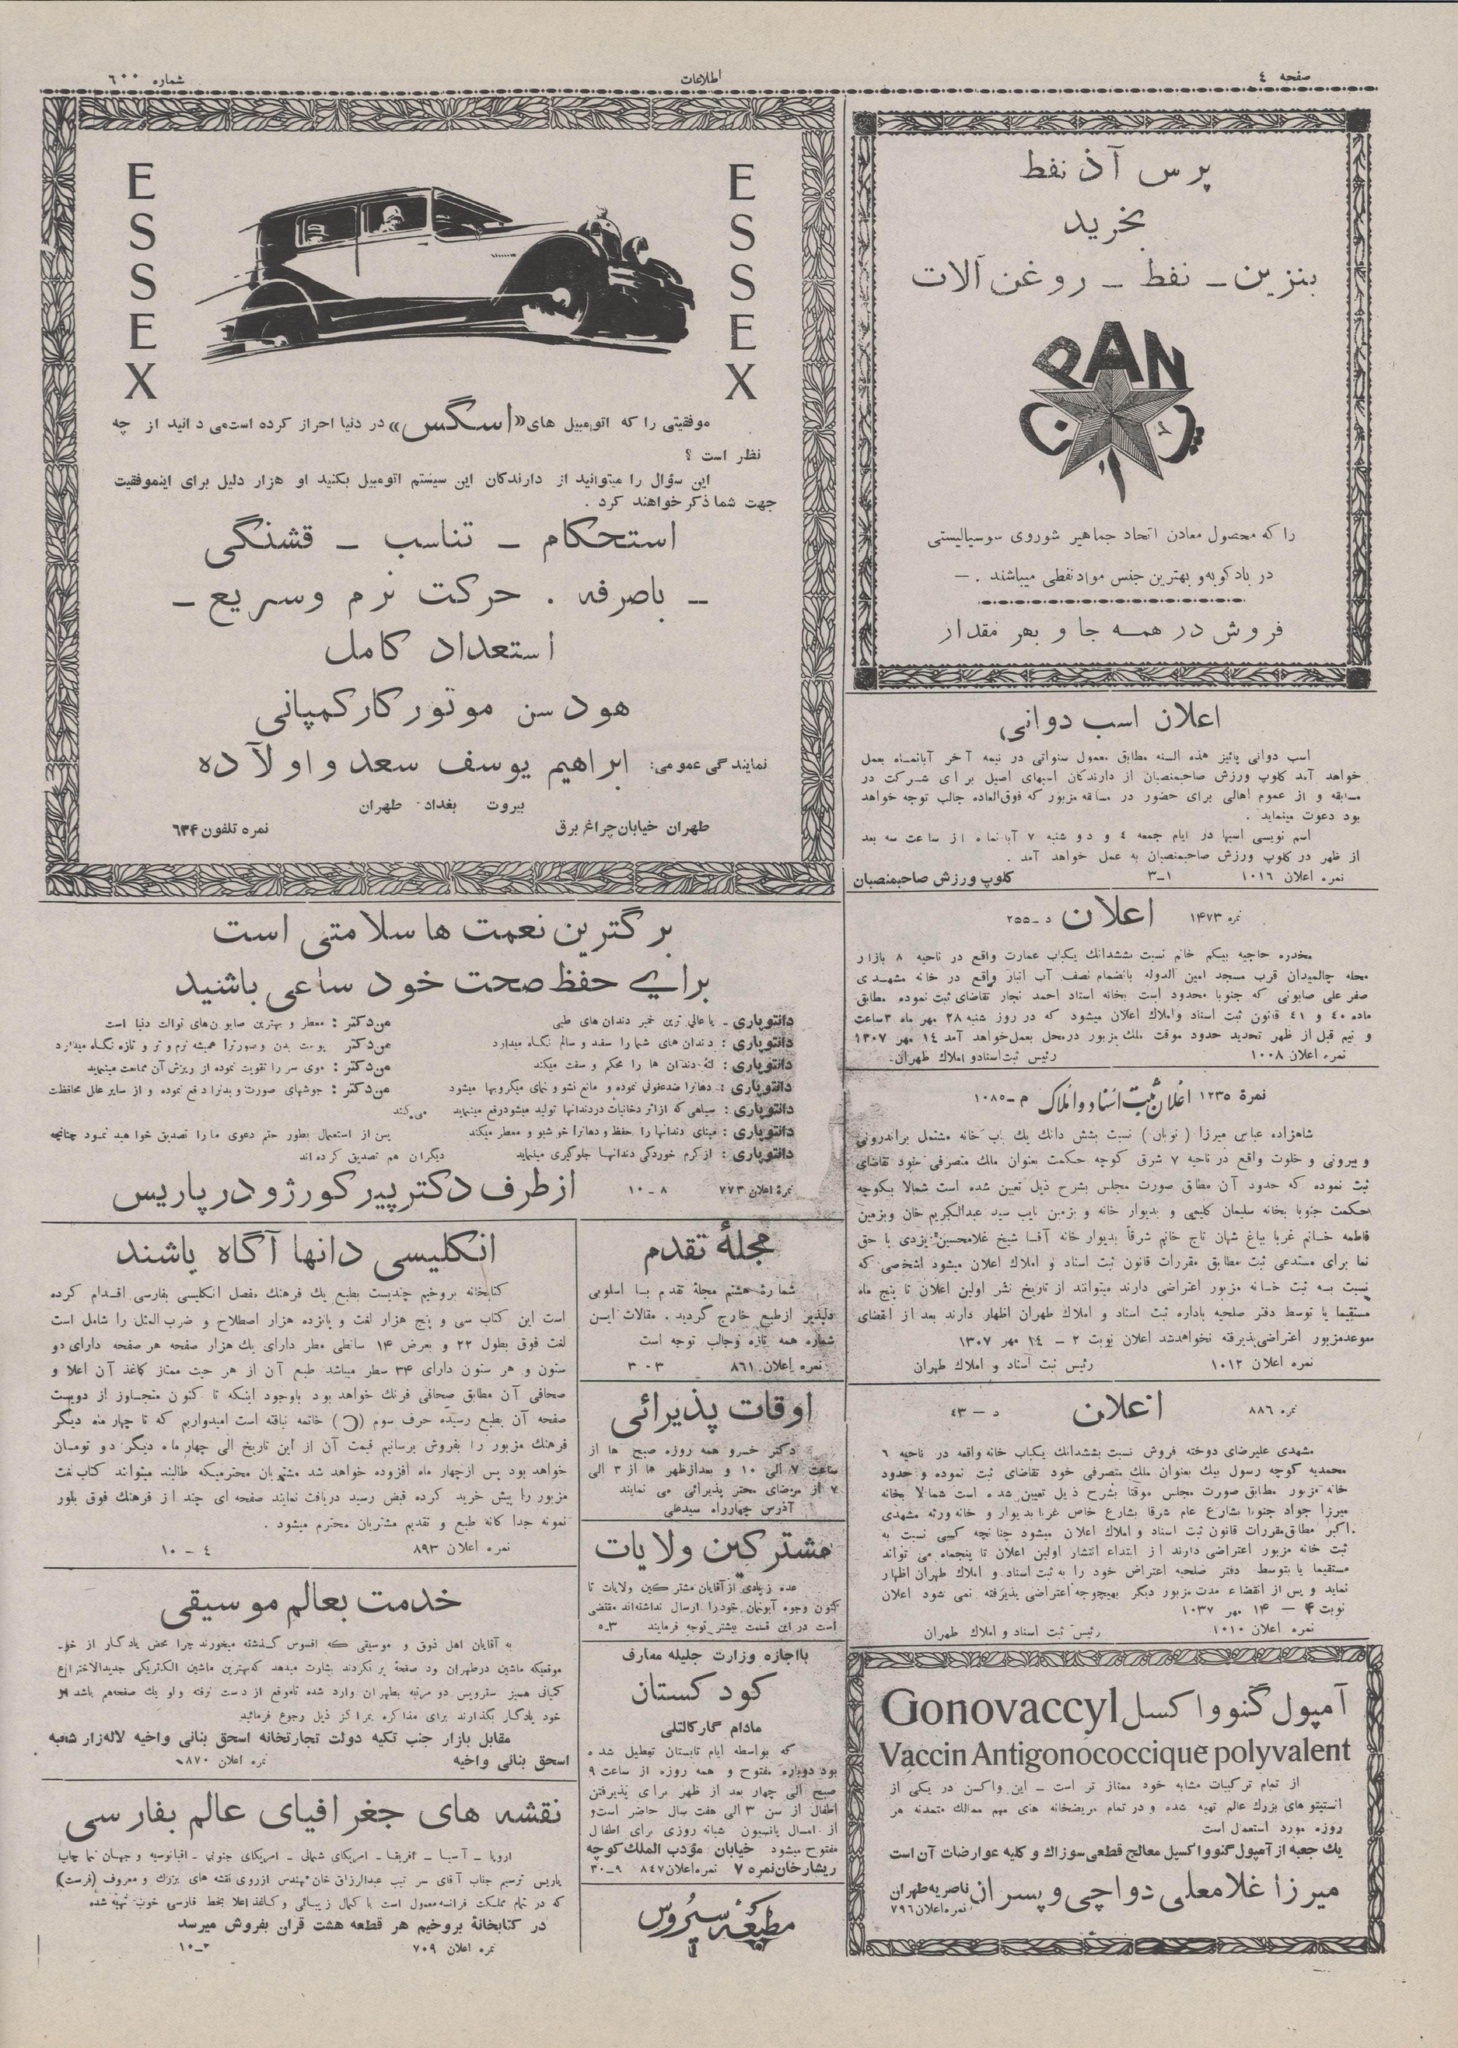 صفحه ٤
اطلاعات
شماره ٦٠٠
پرس آذ نفط
بخرید
بنزین ـ نفط ـ روغن آلات
PAN
را که محصول معادن اتحاد جماهیر شوروی سوسیالیستی
در بادکوبه و بهترین جنس مواد نفطی میباشند . —
فروش در همه جا و بهر مقدار
اعلان اسب دوانی
اسب دوانی پائیز هذه السنه مطابق معمول سنواتی در نیمه آخر آبانماه بعمل
خواهد آمد کلوپ ورزش صاحبمنصبان از دارندگان اسبهای اصیل برای شرکت در
مسابقه و از عموم اهالی برای حضور در مسابقه مزبور که فوق‌العاده جالب توجه خواهد
بود دعوت مینماید .
اسم نویسی اسبها در ایام جمعه ٤ و دو شنبه ٧ آبانماه از ساعت سه بعد
از ظهر در کلوپ ورزش صاحبمنصبان به عمل خواهد آمد .
نمره اعلان ١٠١٦ ١ـ٣ کلوپ ورزش صاحبمنصبان
نمره ١۴٧٣ اعلان د ـ٢٥٥
مخدره حاجیه بیگم خانم نسبت بششدانك یکباب عمارت واقع در ناحیه ٨ بازار
محله چالمیدان قرب مسجد امین الدوله بانضمام نصف آب انبار واقع در خانه مشهدی
صفر علی صابونی که جنوبا محدود است بخانه استاد احمد نجار تقاضای ثبت نموده مطابق
ماده ٤٠ و ٤١ قانون ثبت اسناد و املاك اعلان میشود که در روز شنبه ٢٨ مهر ماه ٣ ساعت
و نیم قبل از ظهر تحدید حدود موقت ملك مزبور در محل بعمل خواهد آمد ١٤ مهر ١٣٠٧
نمره اعلان ١٠٠٨ رئیس ثبت اسناد و املاك طهران.
نمرهٔ ١٢٣٥ اعلان ثبت اسناد و املاک م ـ١٠٨٥
شاهزاده عباس میرزا ( نوبان ) نسبت بشش دانك يك باب خانه مشتمل براندرونی
و بیرونی و خلوت واقع در ناحیه ٧ شرق کوچه حکمت بعنوان ملك متصرفی خود تقاضای
ثبت نموده که حدود آن مطابق صورت مجلس بشرح ذیل تعیین شده است شمالا بکوچه
حکمت جنوبا بخانه سلیمان کلیمی و بدیوار خانه و بزمین نایب سید عبدالکریم خان وبزمین
فاطمه خانم غربا بباغ شهان تاج خانم شرقاً بدیوار خانه آقا شیخ غلامحسین یزدی با حق
نما برای مستدعی ثبت مطابق مقررات قانون ثبت اسناد و املاك اعلان میشود اشخصی که
نسبت به ثبت خانه مزبور اعتراضی دارند میتوانند از تاریخ نشر اولین اعلان تا پنج ماه
مستقیما یا توسط دفتر صلحیه باداره ثبت اسناد و املاك طهران اظهار دارند بعد از انقضای
موعد مزبور اعتراضی پذیرفته نخواهد شد اعلان نوبت ٢ ـ ١٤ مهر ١٣٠٧
نمره اعلان ١٠١٢ رئیس ثبت اسناد و املاك طهران
نمره ٨٨٦ اعلان د — ٤٣
مشهدی علیرضای دوخته فروش نسبت بششدانك یکباب خانه واقعه در ناحیه ٦
محمدیه کوچه رسول بیك بعنوان ملك متصرفی خود تقاضای ثبت نموده و حدود
خانه مزبور مطابق صورت مجلس موقتا بشرح ذیل تعیین شده است شمالا بخانه
میرزا جواد جنوبا بشارع عام شرقا بشارع خاص غربا بدیوار و خانه ورثه مشهدی
اکبر مطابق مقررات قانون ثبت اسناد و املاك اعلان میشود چنانچه کسی نسبت به
ثبت خانه مزبور اعتراضی دارند از ابتداء انتشار اولین اعلان تا پنجماه می تواند
مستقیما یا بتوسط دفتر صلحیه اعتراض خود را به ثبت اسناد و املاك طهران اظهار
نماید و پس از انقضاء مدت مزبور دیگر بهیچوجه اعتراضی پذیرفته نمی شود اعلان
نوبت ۴ — ١۴ مهر ١٠٣٧
نمره اعلان ١٠١٠ رئیس ثبت اسناد و املاك طهران
آمپول گنوواکسل Gonovaccyl
Vaccin Antigonococcique polyvalent
از تمام ترکیبات مشابه خود ممتاز تر است ـ این واکسن در یکی از
انستیتو های بزرك عالم تهیه شده و در تمام مریضخانه های مهم ممالك متمدنه هر
روزه مورد استعمال است
يك جعبه از آمپول گنوواکسیل معالج قطعی سوزاك و کلیه عوارضات آن است
میرزا غلامعلی دواچی و پسران ناصریه طهران
نمره اعلان ٧٩٦
ESSEX
ESSEX
موفقیتی را که اتومبیل های «اسگس» در دنیا احراز کرده است می دانید از چه
نظر است ؟
این سؤال را میتوانید از دارندگان این سیستم اتومبیل بکنید او هزار دلیل برای اینموفقیت
جهت شما ذکر خواهند کرد .
استحکام ـ تناسب ـ قشنگی
ـ باصرفه . حرکت نرم وسریع ـ
استعداد کامل
هود سن موتور کار کمپانی
نمایندگی عمومی: ابراهیم یوسف سعد و اولآده
بیروت بغداد طهران
طهران خیابان چراغ برق نمره تلفون ٦٣۴
برگترین نعمت ها سلامتی است
برای حفظ صحت خود ساعی باشید
دانتوپاری ـ یا عالی ترین خمیر دندان های طبی
دانتوپاری : دندان های شما را سفید و سالم نگاه میدارد
دانتوپاری : لثهٔ دندان ها را محکم و سفت میکند
دانتوپاری : دهانرا ضدعفونی نموده و مانع نشو و نمای میکروبها میشود
دانتوپاری : سیاهی که از اثر دخانیات در دندانها تولید میشود رفع مینماید
دانتوپاری : مینای دندانها را حفظ و دهانرا خوشبو و معطر میکند
دانتوپاری : از کرم خوردگی دندانها جلوگیری مینماید
من دکتر : معطر و بهترین صابون های توالت دنیا است
من دکتر : پوست بدن و صورترا همیشه نرم و تر و تازه نگاه میدارد
من دکتر : موی سر را تقویت نموده از ریزش آن ممانعت مینماید
من دکتر : جوشهای صورت و بدنرا دفع نموده و از سایر علل محافظت
می کند
پس از استعمال بطور حتم دعوی ما را تصدیق خواهید نمود چنانچه
دیگران هم تصدیق کرده اند
نمرهٔ اعلان ٧٧٣ ٨ ـ ١٠ از طرف دکتر پیر کورژو در پاریس
مجلهٔ تقدم
شمارهٔ هشتم مجلهٔ تقدم با اسلوبی
دلپذیر از طبع خارج گردید. مقالات این
شماره همه تازه و جالب توجه است
نمره اعلان ٨٦١ ٣ـ٣
اوقات پذیرائی
دکتر خسرو همه روزه صبح ها از
ساعت ٧ الی ١٠ و بعد از ظهر ها از ٣ الی
٧ از مرضای محترم پذیرائی می نمایند
آدرس چهارراه سید علی
مشترکین ولایات
عده زیادی از آقایان مشترکین ولایات تا
کنون وجوه آبونمان خود را ارسال نداشته‌اند مقتضی
است در این قسمت بیشتر توجه فرمایند ٣ـ٥
بااجازه وزارت جلیله معارف
کودکستان
مادام گارکالتلی
که بواسطه ایام تابستان تعطیل شده
بود دوباره مفتوح و همه روزه از ساعت ٩
صبح الی چهار بعد از ظهر برای پذیرفتن
اطفال از سن ٣ الی هفت سال حاضر است و
از امسال پانسیون شبانه روزی برای اطفال
مفتوح میشود خیابان مؤدب الملك کوچه
ریشار خان نمره ٧ نمره اعلان ٨٤٧ ٩ـ٣٠
مطبعه سیروس
انکلیسی دانها آگاه باشند
کتابخانه بروخیم چندیست بطبع يك فرهنك مفصل انکلیسی بفارسی اقدام کرده
است این کتاب سی و پنج هزار لغت و پانزده هزار اصطلاح و ضرب المثل را شامل است
لغت فوق بطول ٢٢ و بعرض ١۴ سانطی مطر دارای يك هزار صفحه هر صفحه دارای دو
ستون و هر ستون دارای ٣۴ سطر میباشد طبع آن از هر حیث ممتاز کاغذ آن اعلا و
صحافی آن مطابق صحافی فرنك خواهد بود باوجود اینکه تا کنون متجاوز از دویست
صفحه آن بطبع رسیده حرف سوم (C) خاتمه نیافته است امیدواریم که تا چهار ماه دیگر
فرهنك مزبور را بفروش برسانیم قیمت آن از این تاریخ الی چهار ماه دیگر دو تومان
خواهد بود پس از چهار ماه افزوده خواهد شد مشتریان محترمیکه طالبند میتوانند کتاب لغت
مزبور را پیش خرید کرده قبض رسید دریافت نمایند صفحه ای چند از فرهنك فوق بطور
نمونه جدا گانه طبع و تقدیم مشتریان محترم میشود .
نمره اعلان ٨٩٣ ٤ ـ ١٠
خدمت بعالم موسیقی
به آقایان اهل ذوق و موسیقی که افسوس گذشته میخورند چرا محض یادگار از خود
موقعیکه ماشین در طهران بود صفحهٔ پر نکردند بشارت میدهد که بهترین ماشین الکتریکی جدیدالاختراع
کمپانی همیز سفرویس دو مرتبه بطهران وارد شده تا موقع از دست نرفته ولو يك صفحه هم باشد از
خود یادگار بگذارند برای مذاکره بمراکز ذیل رجوع فرمائید
مقابل بازار جنب تکیه دولت تجارتخانه اسحق بنانی واخیه لاله زار شعبه
اسحق بنانی واخیه نمره اعلان
نقشه های جغرافیای عالم بفارسی
اروپا ـ آسیا ـ آفریقا ـ امریکای شمالی ـ امریکای جنوبی ـ اقیانوسیه و جهان نما چاپ
پاریس ترسیم جناب آقای سر تیپ عبدالرزاق خان مهندس از روی نقشه های بزرك و معروف (فرست)
که در تمام مملکت فرانسه معمول است با کمال زیبائی و کاغذ اعلا بخط فارسی خوب تهیه شده
در کتابخانهٔ بروخیم هر قطعه هشت قران بفروش میرسد
نمره اعلان ٧٠٩ ٢ـ١٠